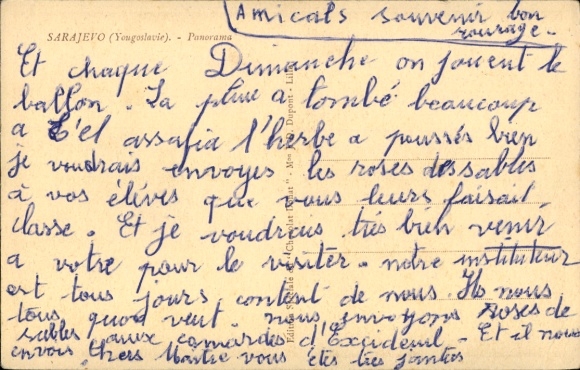 Amicals souvenir bon
courage.
SARAJEVO (Yougoslavie). - Panorama
Et chaque Dimanche on jouent le
ballon. La pluie a tombé beaucoup
a l'herbe a poussés bien
je voudrais envoyes les roses des sables
à vos élèves que vous leurs faisait
classe. Et je voudrais très bien venir
a votre pour le visiter. notre instituteur
est tous jours content de nous Ils nous
tous quand veut. nous envoyons roses de
sables aux camardes d'Excideuil. Et il nous
envois Chers Maitre vous êtes très janties
Edition Spéciale du "Chocolat " - Dupont - Lille